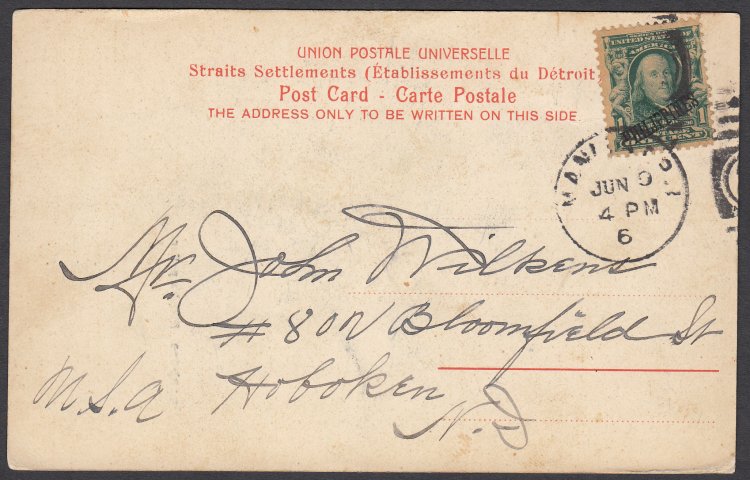 UNION POSTALE UNIVERSELLE
Straits Settlements (Établissements du Détroit
Post Card - Carte Postale
THE ADDRESS ONLY TO BE WRITTEN ON THIS SIDE.
UNITED STATES OF
AMERICA
PHILIPPINES
1 1
JUN 9
4 PM
6
Mr. John Wilkens
# 802 Bloomfield St
Hoboken
U.S.A
N.J